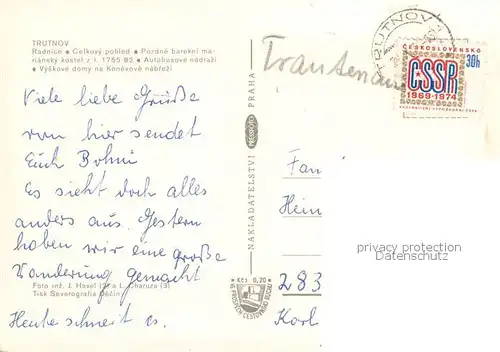 TRUTNOV
Radnice • Celkový pohled • Pozdně barokní ma-
riánský kostel z l. 1755-82 • Autobusové nádraží
• Výškové domy na Koněvově nábřeží
Viele liebe Grüße
von hier sendet
Euch Bohmi
Es sieht doch alles
anders aus. Gestern
haben wir eine große
Wanderung gemacht
Foto inž. J. Hasel (2) a L. Charuza (3)
Tisk Severografia Děčín
Heute schneit es.
NAKLADATELSTVÍ PRESSFOTO PRAHA
Kčs 0,20
VE PROSPĚCH CESTOVNÍHO RUCHU
Trautenau
TRUTNOV
ČESKOSLOVENSKO
30h
ČSSR
1969-1974
Fam
Hein
283
Karl
privacy protection
Datenschutz